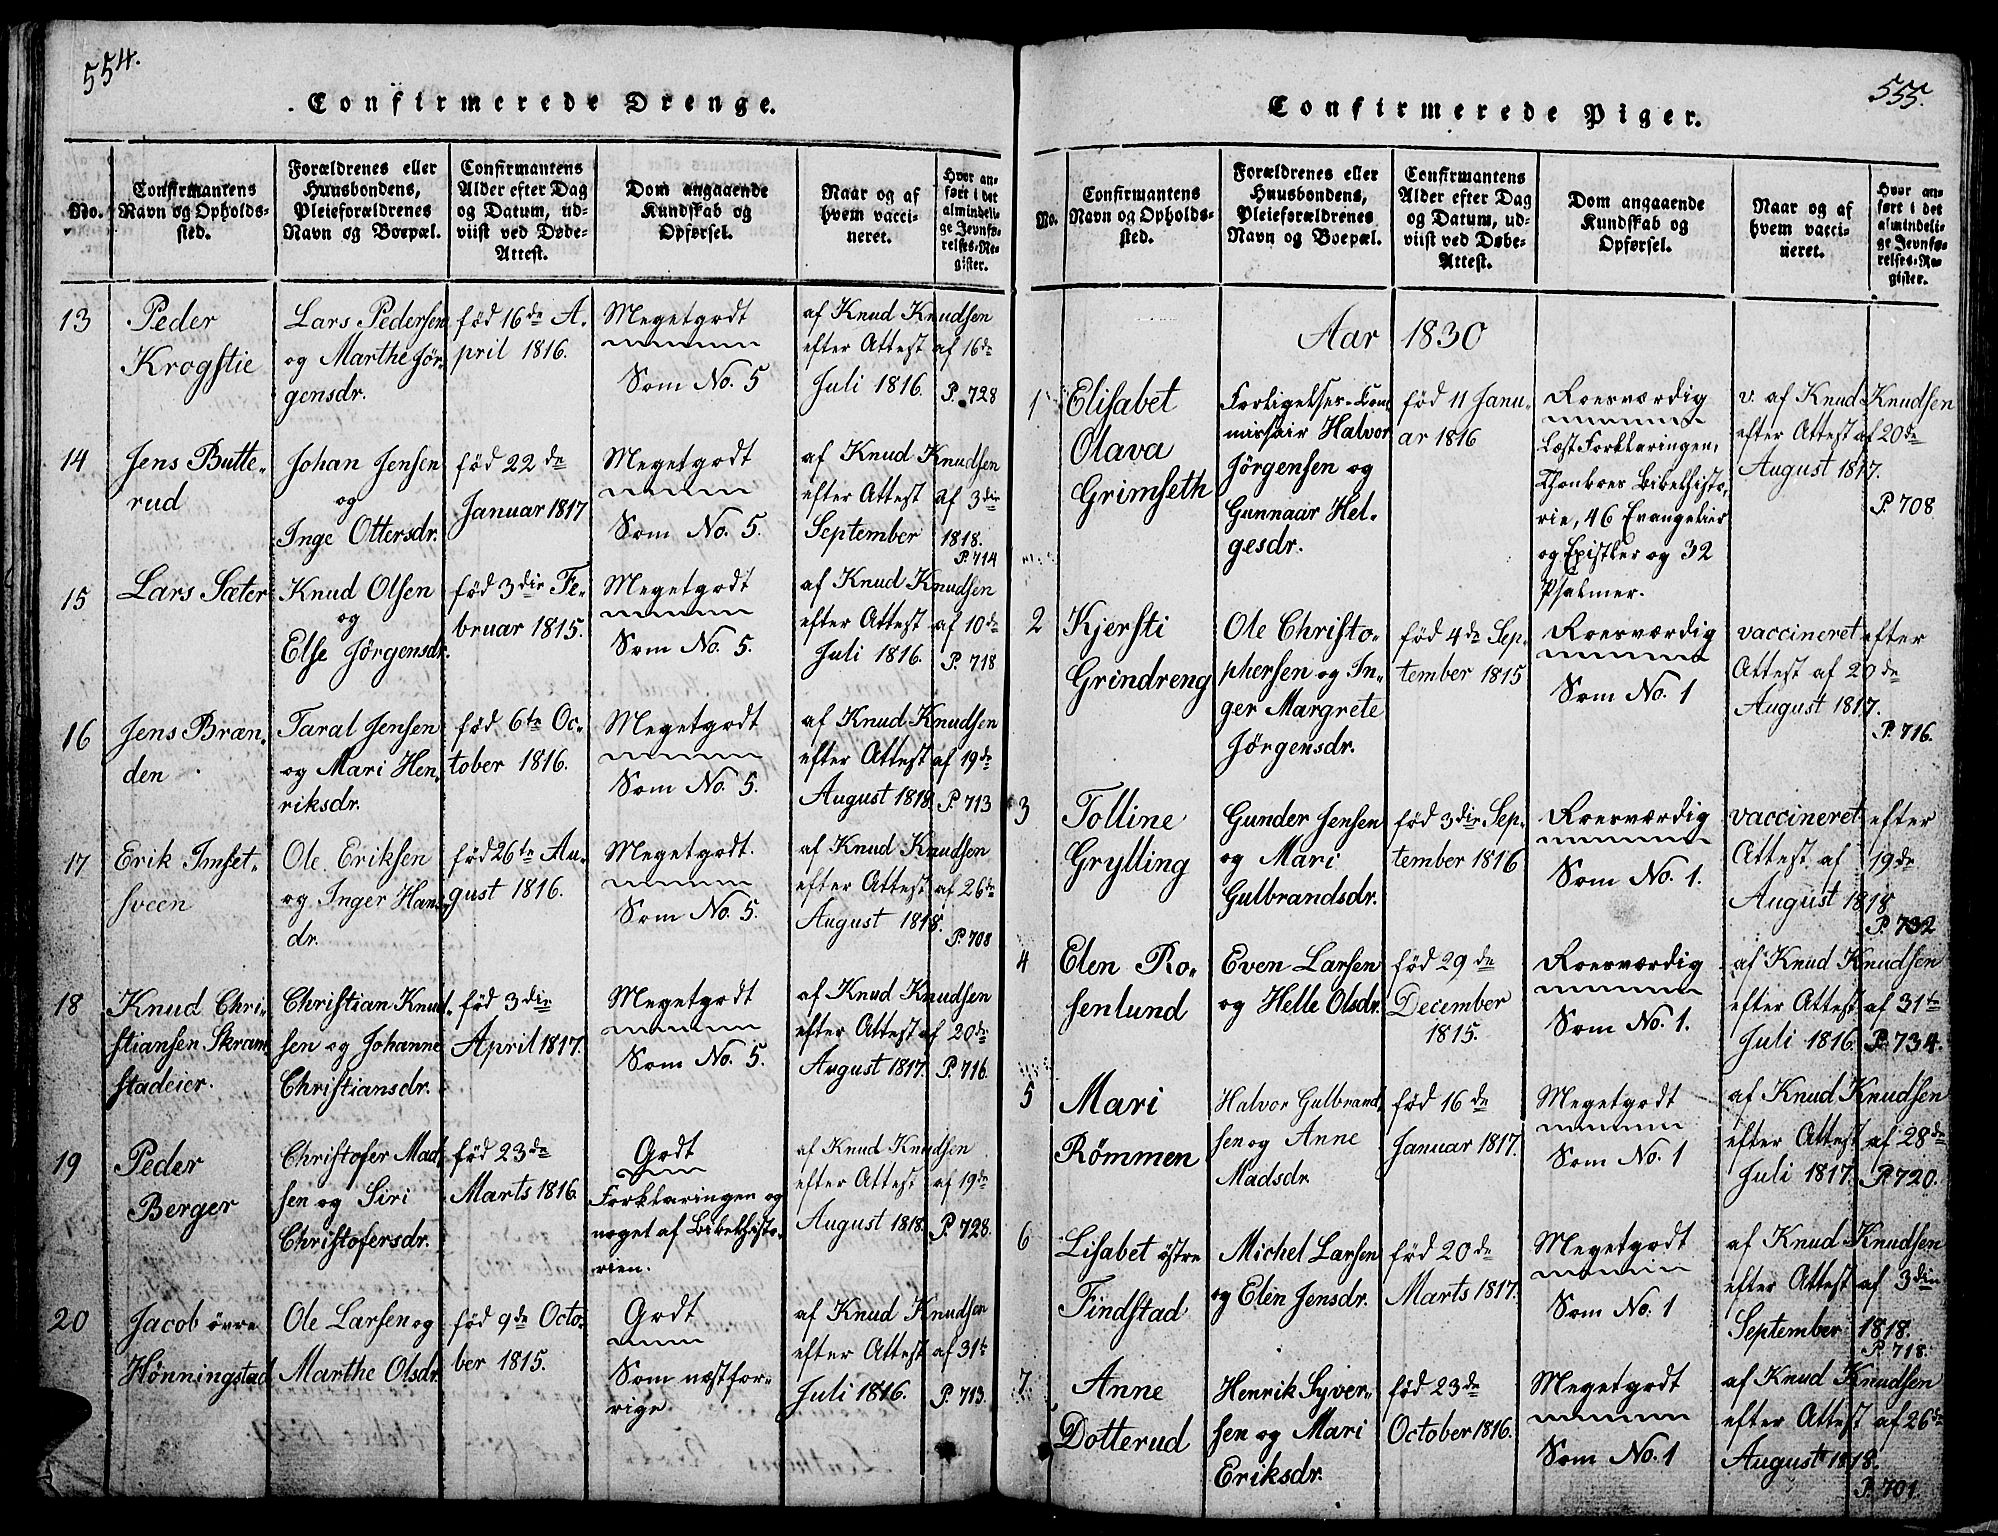 554.
Confirmerede Drenge.
No.
Confirmantens
Navn og Opholds-
sted.
Forældrenes eller
Huusbondens,
Pleieforældrenes
Navn og Boepæl.
Confirmantens
Alder efter Dag
og Datum, ud-
viist ved Døbe-
Attest.
Dom angaaende
Kundskab og
Opførsel.
Naar og af
hvem vacci-
neret.
Hvor an-
ført i det
almindeli-
ge Jevnfø-
relses-Re-
gister.
13
Peder
Krogstie
Lars Pedersen
og Marthe Jör-
gensdr.
född 16de A-
pril 1816.
Megetgodt
Som No. 5
af Knud Knudsen
efter Attest af 16de
Juli 1816.
P. 728
14
Jens Butte-
rud
Johan Jensen
og
Inge Ottersdr.
född 22de
Januar 1817
Megetgodt
Som No. 5.
af Knud Knudsen
efter Attest af 3die
September 1818.
P. 714
15
Lars Sæter
Knud Olsen
og
Else Jörgensdr.
född 3die Fe-
bruar 1815.
Megetgodt
Som No. 5.
af Knud Knudsen
efter Attest af 10de
Juli 1816.
P. 718
16
Jens Bræn-
den
Taral Jensen
og Mari Hen-
riksdr.
född 6te Oc-
tober 1816.
Megetgodt
Som No. 5.
af Knud Knudsen
efter Attest af 19de
August 1818.
P. 713
17
Erik Imset-
sveen
Ole Eriksen
og Inger Hans-
dr.
född 26te Au-
gust 1816.
Megetgodt.
Som No. 5.
af Knud Knudsen
efter Attest af 26te
August 1818.
P. 708
18
Knud Chri-
stiansen Skram-
stadeier.
Christian Knud-
sen og Johanne
Christiansdr.
född 3die
April 1817.
Megetgodt
Som No. 5.
af Knud Knudsen
efter Attest af 20de
August 1817.
P. 716.
19
Peder
Berger
Christofer Mad-
sen og Siri
Christofersdr.
född 23de
Marts 1816.
Godt
Forklaringen og
noget af Bibelhisto-
rien.
af Knud Knudsen
efter Attest af 19de
August 1818.
P. 728.
20
Jacob övre
Hönningstad
Ole Larsen og
Marthe Olsdr.
född 9de Octo-
ber 1815.
Godt
Som næstfor-
rige
af Knud Knudsen
efter Attest af 31te
Juli 1816.
P. 713.
555.
Confirmerede Piger.
No.
Confirmantens
Navn og Opholds-
sted.
Forældrenes eller
Huusbondens,
Pleieforældrenes
Navn og Boepæl.
Confirmantens
Alder efter Dag
og Datum, ud-
viist ved Døbe-
Attest.
Dom angaaende
Kundskab og
Opførsel.
Naar og af
hvem vacci-
neret.
Hvor an-
ført i det
almindeli-
ge Jevnfø-
relses-Re-
gister.
Aar 1830
1
Elisabet
Olava
Grimseth
Forligelses-Com-
missair Halvor
Jörgensen og
Gunnaar Hel-
gesdr.
född 11 Janu-
ar 1816
Roesværdig
Læst Forklaringen,
Thonboes Bibelhisto-
rie, 46 Evangelier
og Epistler og 32
Psalmer.
v. af Knud Knudsen
efter Attest af 20de
August 1817.
P. 708
2
Kjersti
Grindreng
Ole Christo-
phersen og In-
ger Margrete
Jörgensdr.
född 4de Sep-
tember 1815
Roesværdig
Som No. 1
vaccineret efter
Attest af 20de
August 1817.
P. 716.
3
Tolline
Grylling
Gunder Jensen
og Mari
Gulbrandsdr.
född 3die Sep-
tember 1816
Roesværdig
Som No. 1.
vaccineret efter
Attest af 19de
August 1818
P. 732
4
Elen Ro-
senlund
Even Larsen
og Helle Olsdr.
född 29de
December
1815.
Roesværdig
Som No. 1.
af Knud Knudsen
efter Attest af 31te
Juli 1816.
P. 734.
5
Mari
Römmen
Halvor Gulbrand-
sen og Anne
Madsdr.
född 16de
Januar 1817.
Megetgodt
Som No. 1
af Knud Knudsen
efter Attest af 28de
Juli 1817.
P. 720.
6
Lisabet östre
Findstad
Michel Larsen
og Elen Jensdr.
född 20de
Marts 1817.
Megetgodt
Som No. 1
af Knud Knudsen
efter Attest af 3die
September 1818.
P. 718.
7
Anne
Dotterud
Henrik Syver-
sen og Mari
Eriksdr.
född 23de
October 1816.
Megetgodt
Som No. 1
af Knud Knudsen
efter Attest af 26de
August 1818.
P. 701.